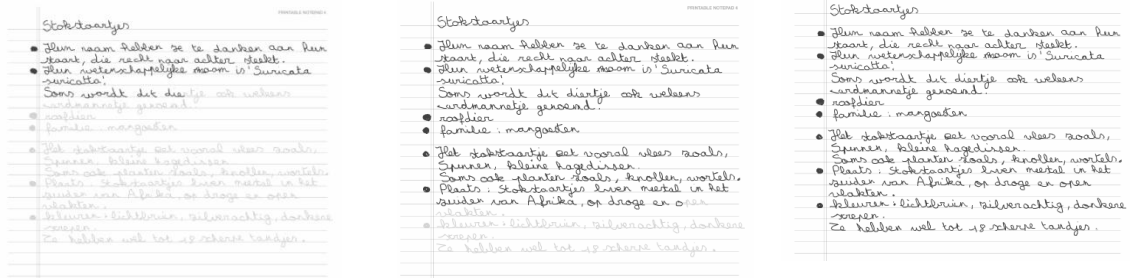 PRINTABLE NOTEPAD 4
Stokstaartjes
Hun naam hebben ze te danken aan hun
staart, die recht naar achter steekt.
Hun wetenschappelijke naam is 'Suricata
suricatta'.
Soms wordt dit diertje ook weleens
aardmannetje genoemd.
roofdier
familie : mangoesten
Het stokstaartje eet vooral vlees zoals,
Spinnen, kleine hagedissen.
Soms ook planten zoals, knollen, wortels.
Plaats : Stokstaartjes leven meestal in het
zuiden van Afrika, op droge en open
vlakten.
kleuren : lichtbruin, zilverachtig, donkere
strepen.
Ze hebben wel tot 18 scherpe tandjes.
PRINTABLE NOTEPAD 4
Stokstaartjes
Hun naam hebben ze te danken aan hun
staart, die recht naar achter steekt.
Hun wetenschappelijke naam is 'Suricata
suricatta'.
Soms wordt dit diertje ook weleens
aardmannetje genoemd.
roofdier
familie : mangoesten
Het stokstaartje eet vooral vlees zoals,
Spinnen, kleine hagedissen.
Soms ook planten zoals, knollen, wortels.
Plaats : Stokstaartjes leven meestal in het
zuiden van Afrika, op droge en open
vlakten.
kleuren : lichtbruin, zilverachtig, donkere
strepen.
Ze hebben wel tot 18 scherpe tandjes.
Stokstaartjes
Hun naam hebben ze te danken aan hun
staart, die recht naar achter steekt.
Hun wetenschappelijke naam is 'Suricata
suricatta'.
Soms wordt dit diertje ook weleens
aardmannetje genoemd.
roofdier
familie : mangoesten
Het stokstaartje eet vooral vlees zoals,
Spinnen, kleine hagedissen.
Soms ook planten zoals, knollen, wortels.
Plaats : Stokstaartjes leven meestal in het
zuiden van Afrika, op droge en open
vlakten.
kleuren : lichtbruin, zilverachtig, donkere
strepen.
Ze hebben wel tot 18 scherpe tandjes.